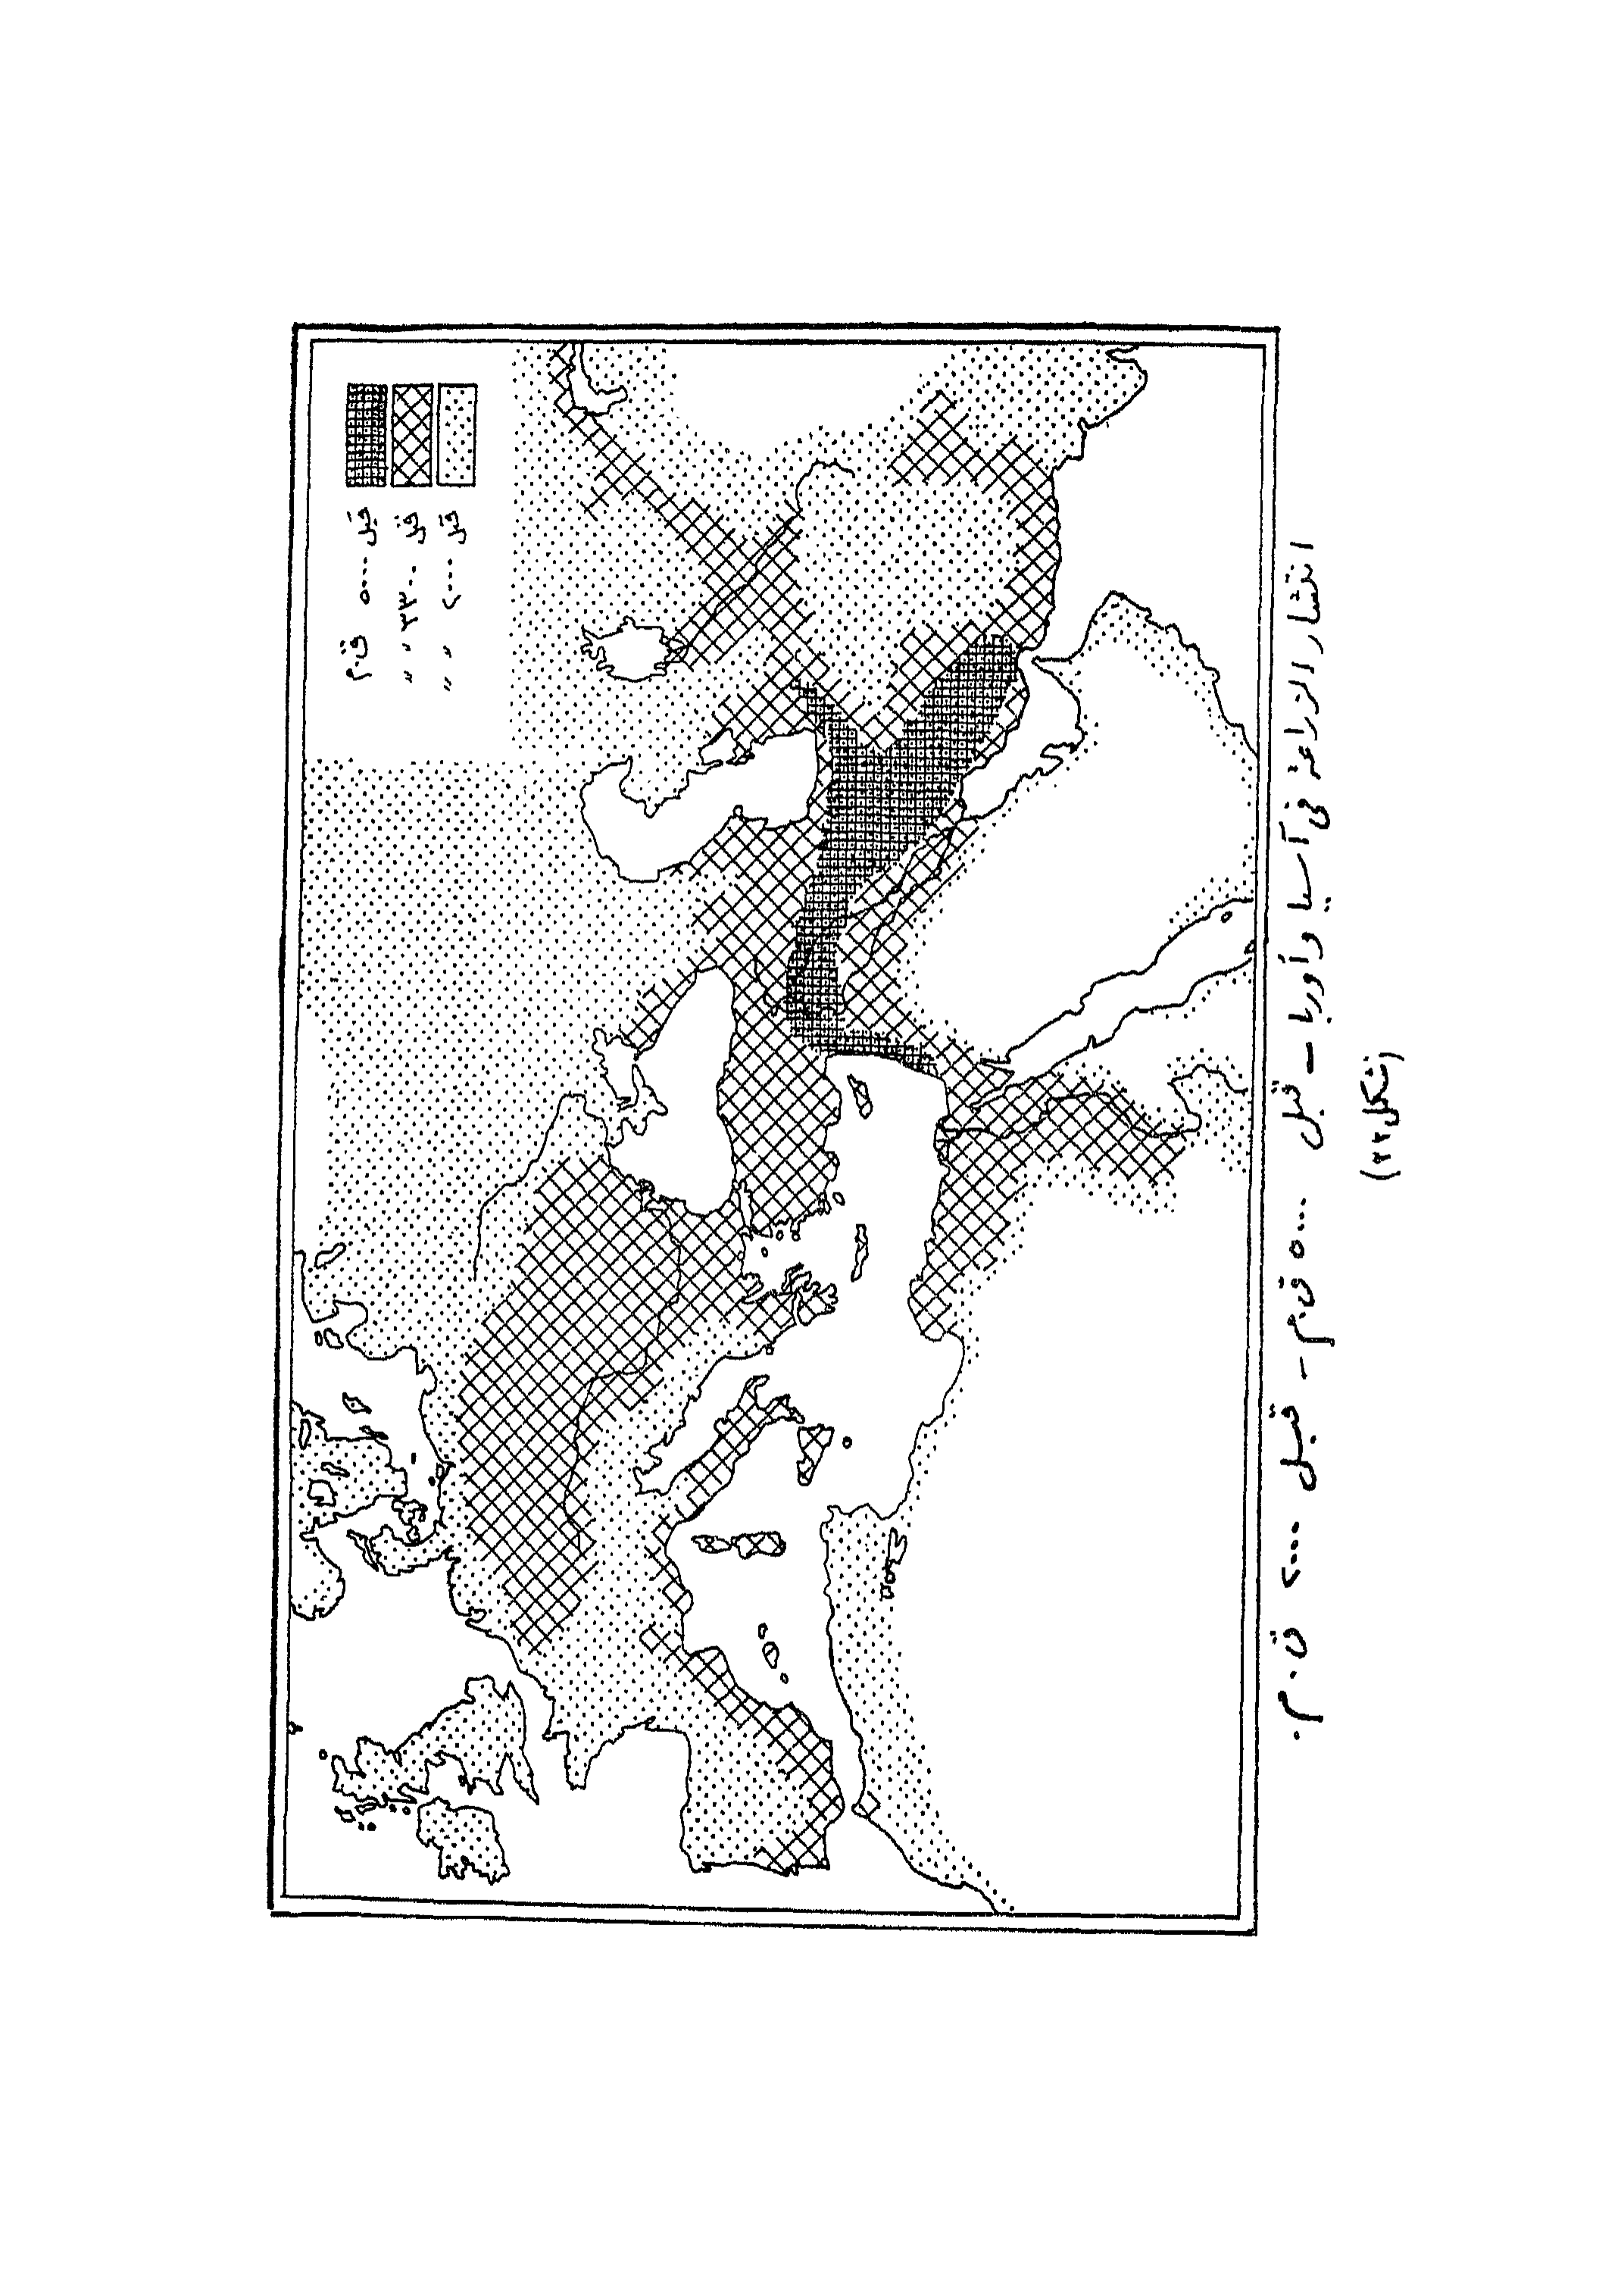 قبل ٥٠٠٠ ق.م
قبل ٣٣٠٠ " "
قبل ٢٠٠٠ " "
انتشار الزراعة في آسيا وأوربا – قبل ٥٠٠٠ ق.م – قبل ٢٠٠٠ ق.م.
(شكل ٢٢)